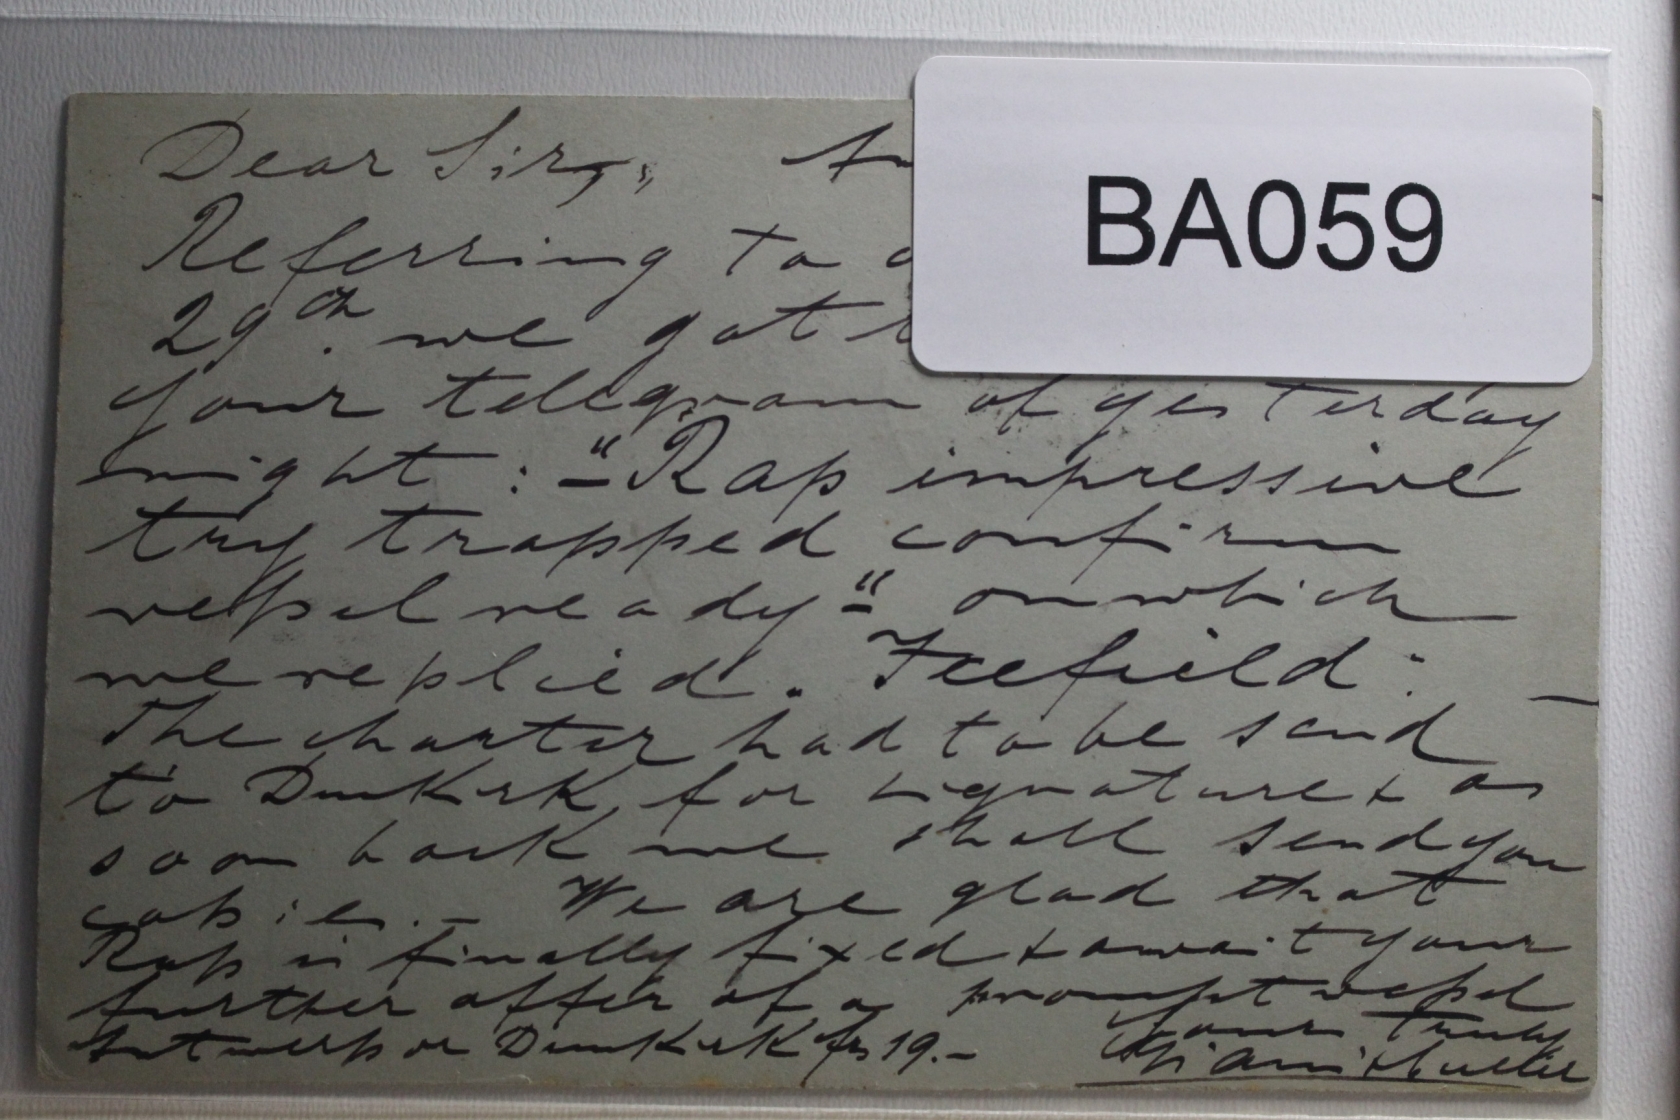 BA059
Dear Sirs,
Referring to
29th. we got
your telegram of yesterday
night : "Rap impressive
try trapped confirm
vessel ready" on which
we replied. Icefield:
The charter had to be send
to Dunkirk, for signature & as
soon back we shall send you
copies. - We are glad that
Rap is finally fixed & await your
further offer of a prompt vessel
Antwerp or Dunkirk frs 19.-
Yours truly